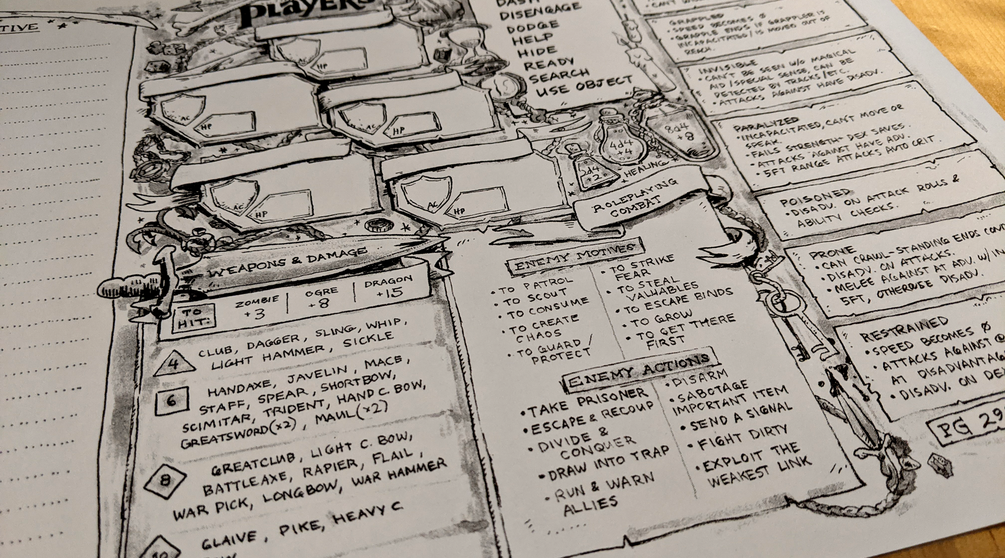 TIVE
PLAYERS
AC
HP
AC
HP
AC
HP
AC
HP
DASH
DISENGAGE
DODGE
HELP
HIDE
READY
SEARCH
USE OBJECT
8d4
+8
4d4
+4
2d4
+2
+HEALING
WEAPONS & DAMAGE
TO
HIT:
ZOMBIE
+3
OGRE
+8
DRAGON
+15
4
CLUB, DAGGER, SLING, WHIP,
LIGHT HAMMER, SICKLE
6
HANDAXE, JAVELIN, MACE,
STAFF, SPEAR, SHORTBOW,
SCIMITAR, TRIDENT, HAND C. BOW,
GREATSWORD(x2), MAUL(x2)
8
GREATCLUB, LIGHT C. BOW,
BATTLEAXE, RAPIER, FLAIL,
WAR PICK, LONGBOW, WAR HAMMER
10
GLAIVE, PIKE, HEAVY C.
ROLEPLAYING
COMBAT
ENEMY MOTIVES
• TO PATROL
• TO SCOUT
• TO CONSUME
• TO CREATE
CHAOS
• TO GUARD/
PROTECT
• TO STRIKE
FEAR
• TO STEAL
VALUABLES
• TO ESCAPE BINDS
• TO GROW
• TO GET THERE
FIRST
ENEMY ACTIONS
• TAKE PRISONER
• ESCAPE & RECOUP
• DIVIDE &
CONQUER
• DRAW INTO TRAP
• RUN & WARN
ALLIES
• DISARM
• SABOTAGE
IMPORTANT ITEM
• SEND A SIGNAL
• FIGHT DIRTY
• EXPLOIT THE
WEAKEST LINK
GRAPPLED
• SPEED BECOMES Ø
• GRAPPLE ENDS IF GRAPPLER IS
INCAPACITATED/IS MOVED OUT OF
REACH.
INVISIBLE
• CAN'T BE SEEN W/O MAGICAL
AID/SPECIAL SENSE, CAN BE
DETECTED BY TRACKS/ETC.
• ATTACKS AGAINST HAVE DISADV.
PARALYZED
• INCAPACITATED, CAN'T MOVE OR
SPEAK.
• FAILS STRENGTH/DEX SAVES.
• ATTACKS AGAINST HAVE ADV.
• 5FT RANGE ATTACKS AUTO CRIT.
POISONED
• DISADV. ON ATTACK ROLLS &
ABILITY CHECKS.
PRONE
• CAN CRAWL-STANDING ENDS
• DISADV. ON ATTACKS.
• MELEE AGAINST AT ADV. W/IN
5FT, OTHERWISE DISADV.
RESTRAINED
• SPEED BECOMES Ø
• ATTACKS AGAINST @
AT DISADVANTA
• DISADV. ON DE
PG 29